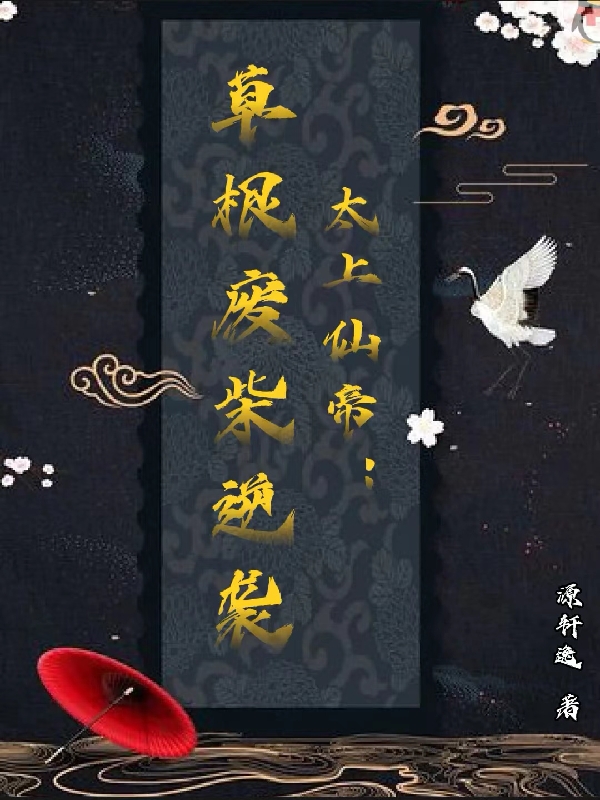 太上仙帝：
草根废柴逆袭
源轩逸 著